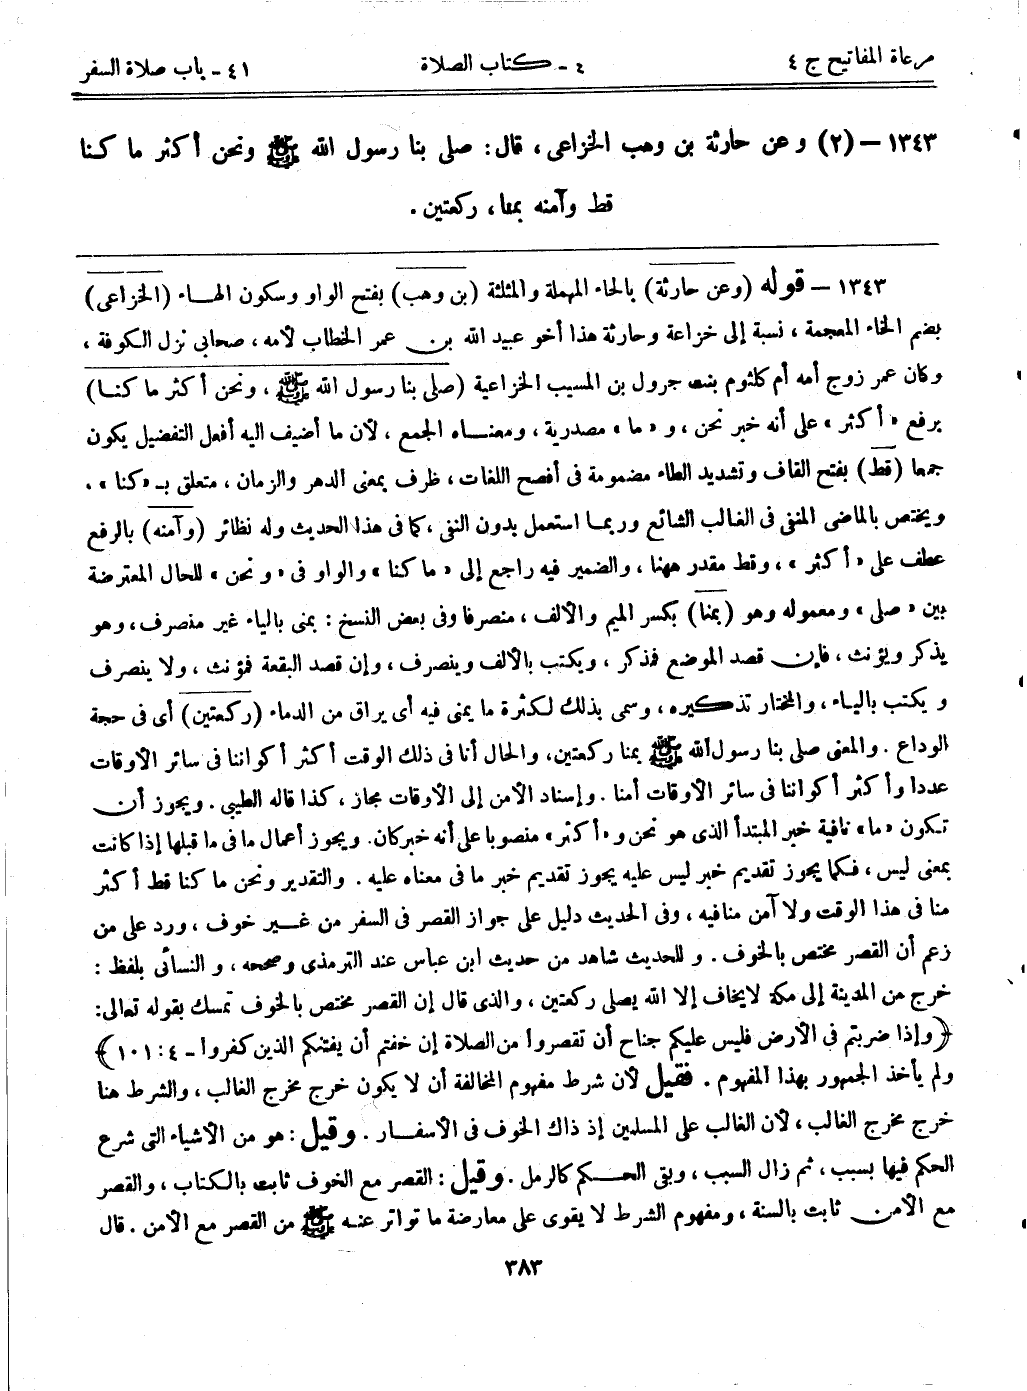 مرعاة المفاتيح ج ٤
٤ - كتاب الصلاة
٤١ - باب صلاة السفر
١٣٤٣ – (٢) وعن حارثة بن وهب الخزاعى، قال: صلى بنا رسول الله ﷺ ونحن أكثر ما كنا
قط وآمنه بمنا، ركعتين .
١٣٤٣ – قوله (وعن حارثة) بالحاء المهملة والمثلثة (بن وهب) بفتح الواو وسكون الهاء (الخزاعى)
بضم الخاء المعجمة، نسبة إلى خزاعة وحارثة هذا أخو عبيد الله بن عمر الخطاب لأمه، صحابى نزل الكوفة،
وكان عمر زوج أمه أم كلثوم بنت جرول بن المسيب الخزاعية (صلى بنا رسول الله ﷺ، ونحن أكثر ما كنا)
برفع «أكثر» على أنه خبر نحن، و«ما» مصدرية، ومعناه الجمع، لأن ما أضيف اليه أفعل التفضيل يكون
جمعا (قط) بفتح القاف وتشديد الطاء مضمومة فى أفصح اللغات، ظرف بمعنى الدهر والزمان، متعلق بـ«كنا».
ويختص بالماضى المنفى فى الغالب الشائع وربما استعمل بدون النفى، كما فى هذا الحديث وله نظائر (وآمنه) بالرفع
عطف على «أكثر»، وقط مقدر ههنا، والضمير فيه راجع إلى «ما كنا» والواو فى «ونحن» للحال المعترضة
بين «صلى» ومعموله وهو (بمنا) بكسر الميم والألف، منصرفا وفى بعض النسخ: بمنى بالياء غير منصرف، وهو
يذكر ويؤنث، فإن قصد الموضع فمذكر، ويكتب بالألف وينصرف، وإن قصد البقعة فمؤنث، ولا ينصرف
ويكتب بالياء، والمختار تذكيره، وسمى بذلك لكثرة ما يمنى فيه أى يراق من الدماء (ركعتين) أى فى حجة
الوداع . والمعنى صلى بنا رسول الله ﷺ بمنا ركعتين، والحال أنا فى ذلك الوقت أكثر أكواننا فى سائر الأوقات
عددا وأكثر أكواننا فى سائر الأوقات أمنا . وإسناد الأمن إلى الأوقات مجاز، كذا قاله الطيبى . ويجوز أن
تكون «ما» نافية خبر المبتدأ الذى هو نحن و«أكثر» منصوبا على أنه خبر كان. ويجوز أعمال ما فى ما قبلها إذا كانت
بمعنى ليس، فكما يجوز تقديم خبر ليس عليه يجوز تقديم خبر ما فى معناه عليه . والتقدير ونحن ما كنا قط أكثر
منا فى هذا الوقت ولا آمن منافيه، وفى الحديث دليل على جواز القصر فى السفر من غير خوف، ورد على من
زعم أن القصر مختص بالخوف. و للحديث شاهد من حديث ابن عباس عند الترمذى وصححه، و النسائى بلفظ:
خرج من المدينة إلى مكة لايخاف إلا الله يصلى ركعتين، والذى قال إن القصر مختص بالخوف تمسك بقوله تعالى:
﴿وإذا ضربتم فى الأرض فليس عليكم جناح أن تقصروا من الصلاة إن خفتم أن يفتنكم الذين كفروا - ٤: ١٠١﴾
ولم يأخذ الجمهور بهذا المفهوم . فقيل لأن شرط مفهوم المخالفة أن لا يكون خرج مخرج الغالب، والشرط هنا
خرج مخرج الغالب، لأن الغالب على المسلمين إذ ذاك الخوف فى الأسفار . وقيل: هو من الأشياء التى شرع
الحكم فيها بسبب، ثم زال السبب، وبقى الحكم كالرمل . وقيل: القصر مع الخوف ثابت بالكتاب، والقصر
مع الأمن ثابت بالسنة، ومفهوم الشرط لا يقوى على معارضة ما تواتر عنه ﷺ من القصر مع الأمن . قال
٣٨٣